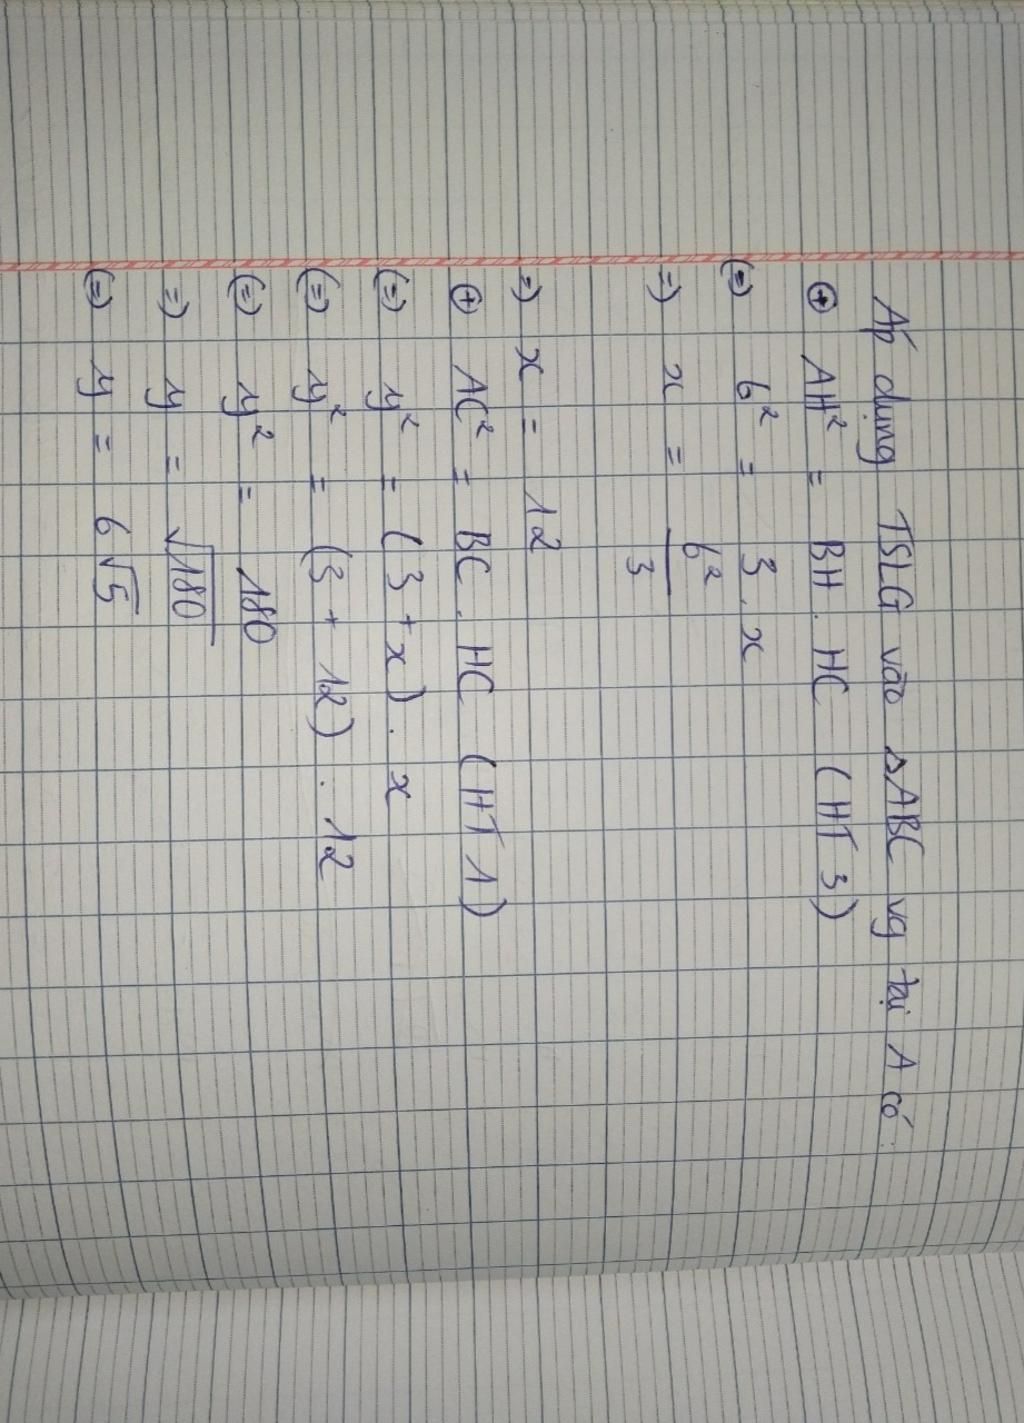 Áp dụng TSLG vào ΔABC vg tại A có:
⊕ AH² = BH . HC (HT 3)
(=) 6² = 3 . x
=) x = 6²/3
=) x = 12
⊕ AC² = BC . HC (HT 1)
(=) y² = (3 + x) . x
(=) y² = (3 + 12) . 12
(=) y² = 180
=) y = √180
(=) y = 6√5